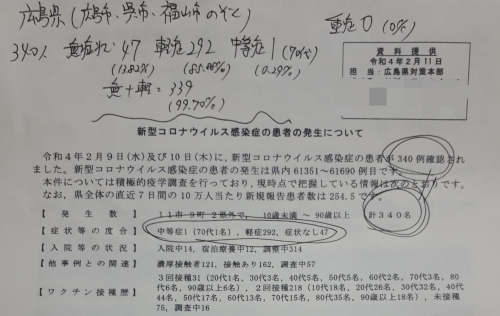 広島県(広島市、呉市、福山市のぞく)
重症0 (0%)
340人 無症状47 軽症292 中等症1(70代)
(13.82%) (85.88%) (0.29%)
無+軽=339
(99.70%)
資料提供
令和4年2月11日
担当:広島県対策本部
新型コロナウイルス感染症の患者の発生について
令和4年2月9日(水)及び10日(木)に、新型コロナウイルス感染症の患者が340例確認され
ました。新型コロナウイルス感染症の患者の発生は県内61351~61690例目です。
本件については積極的疫学調査を行っており、現時点で把握している情報は次のとおりです。
なお、県全体の直近7日間の10万人当たり新規報告者数は254.5です。
【発生数】 11市9町2県外で、10歳未満~90歳以上 計340名
【症状等の度合】 中等症1(70代1名)、軽症292、症状なし47
【入院等の状況】 入院中14、宿泊療養中12、調整中314
【他事例との関連】 濃厚接触者121、接触あり162、調査中57
【ワクチン接種歴】 3回接種31(20代1名、30代3名、40代5名、50代5名、60代2名、70代3名、80
代6名、90歳以上6名)、2回接種218(10代18名、20代26名、30代32名、40代
44名、50代17名、60代13名、70代15名、80代35名、90歳以上18名)、未接種
75、調査中16